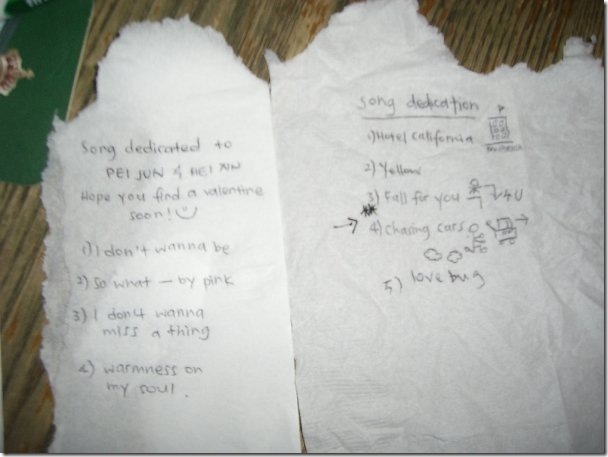 Song dedicated to
PEI JUN & HEI JUN
Hope you find a valentine
soon!
1) I don't wanna be
2) So what – by pink
3) I don't wanna
miss a thing
4) warmness on
my soul.
song dedication
1) Hotel California
2) Yellow
3) Fall for you 4 U
4) Chasing cars
5) love bug